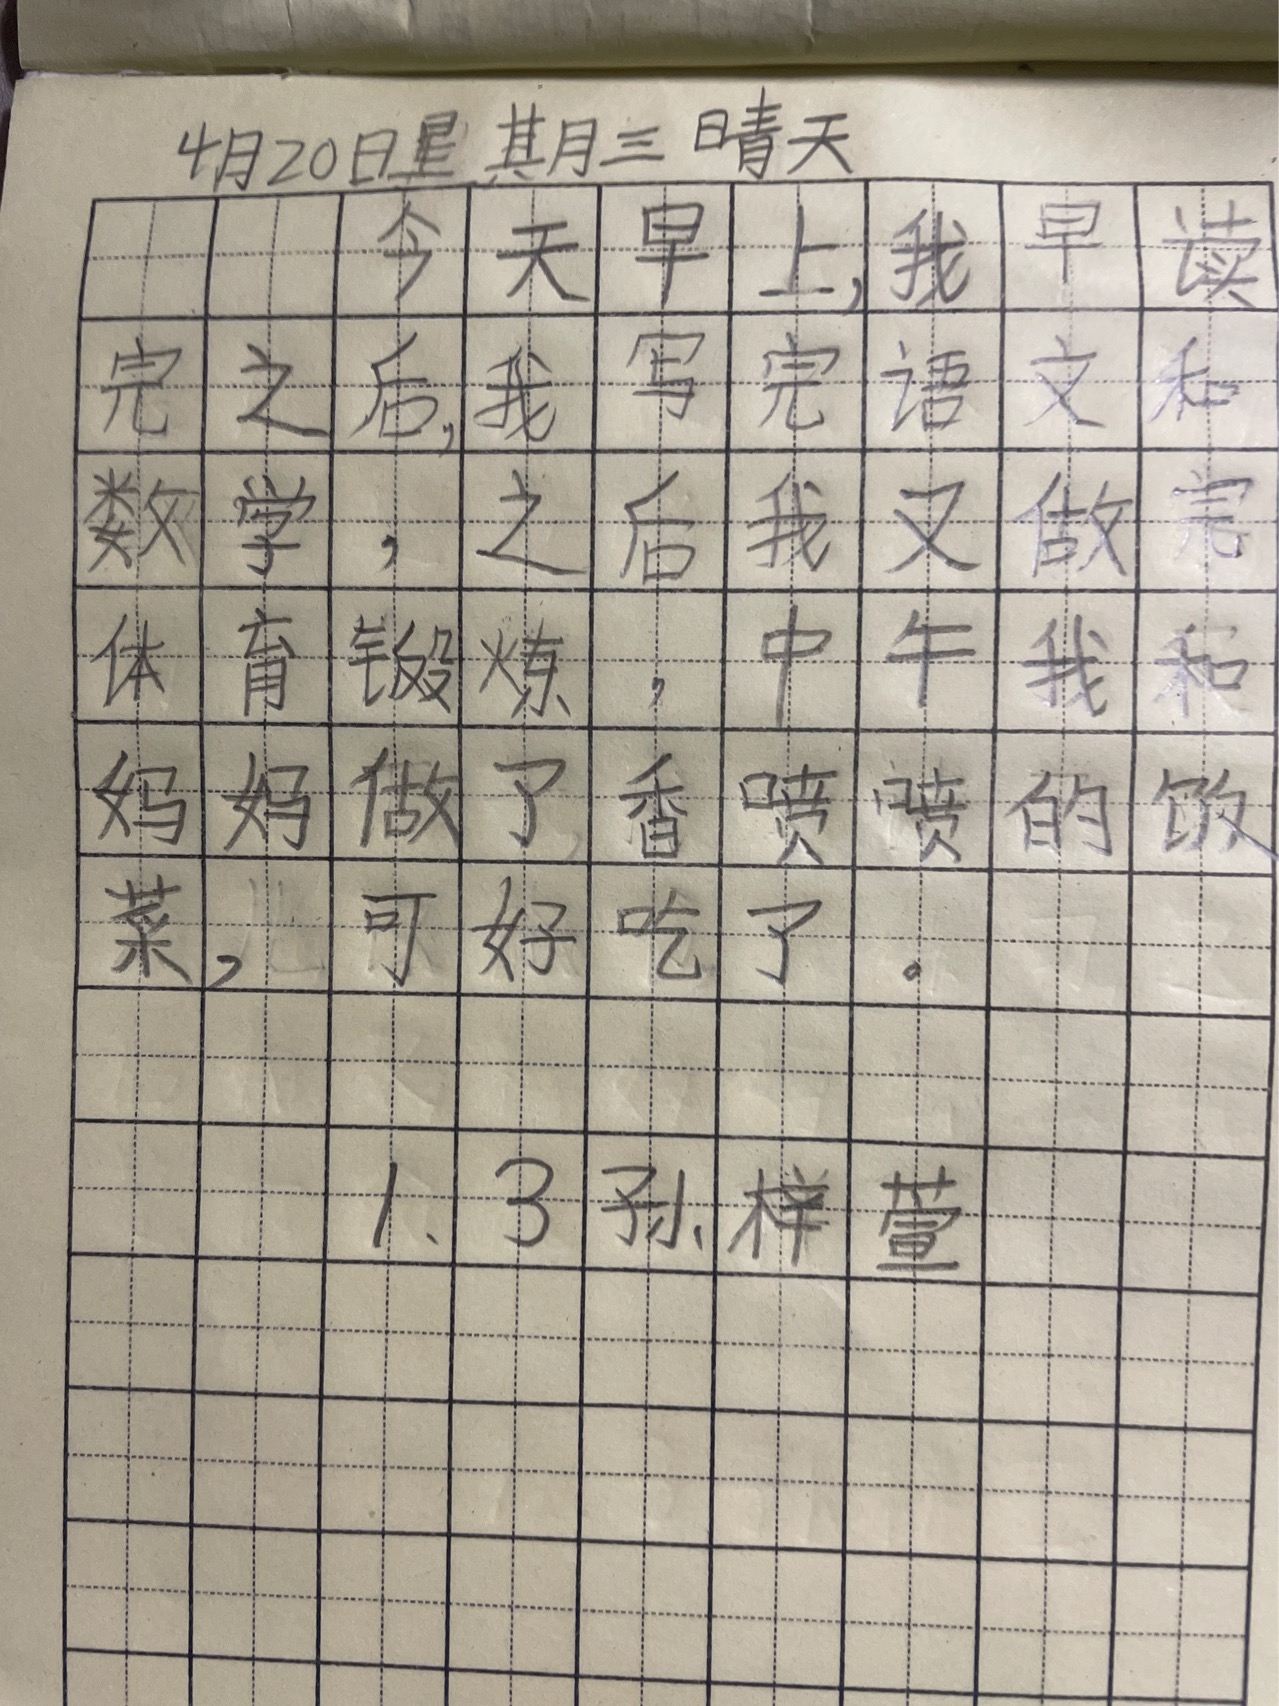 4月20日星期三 晴天
今天早上,我早读
完之后,我写完语文和
数学,之后我又做完
体育锻炼,中午我和
妈妈做了香喷喷的饭
菜,可好吃了。
1、3孙梓萱